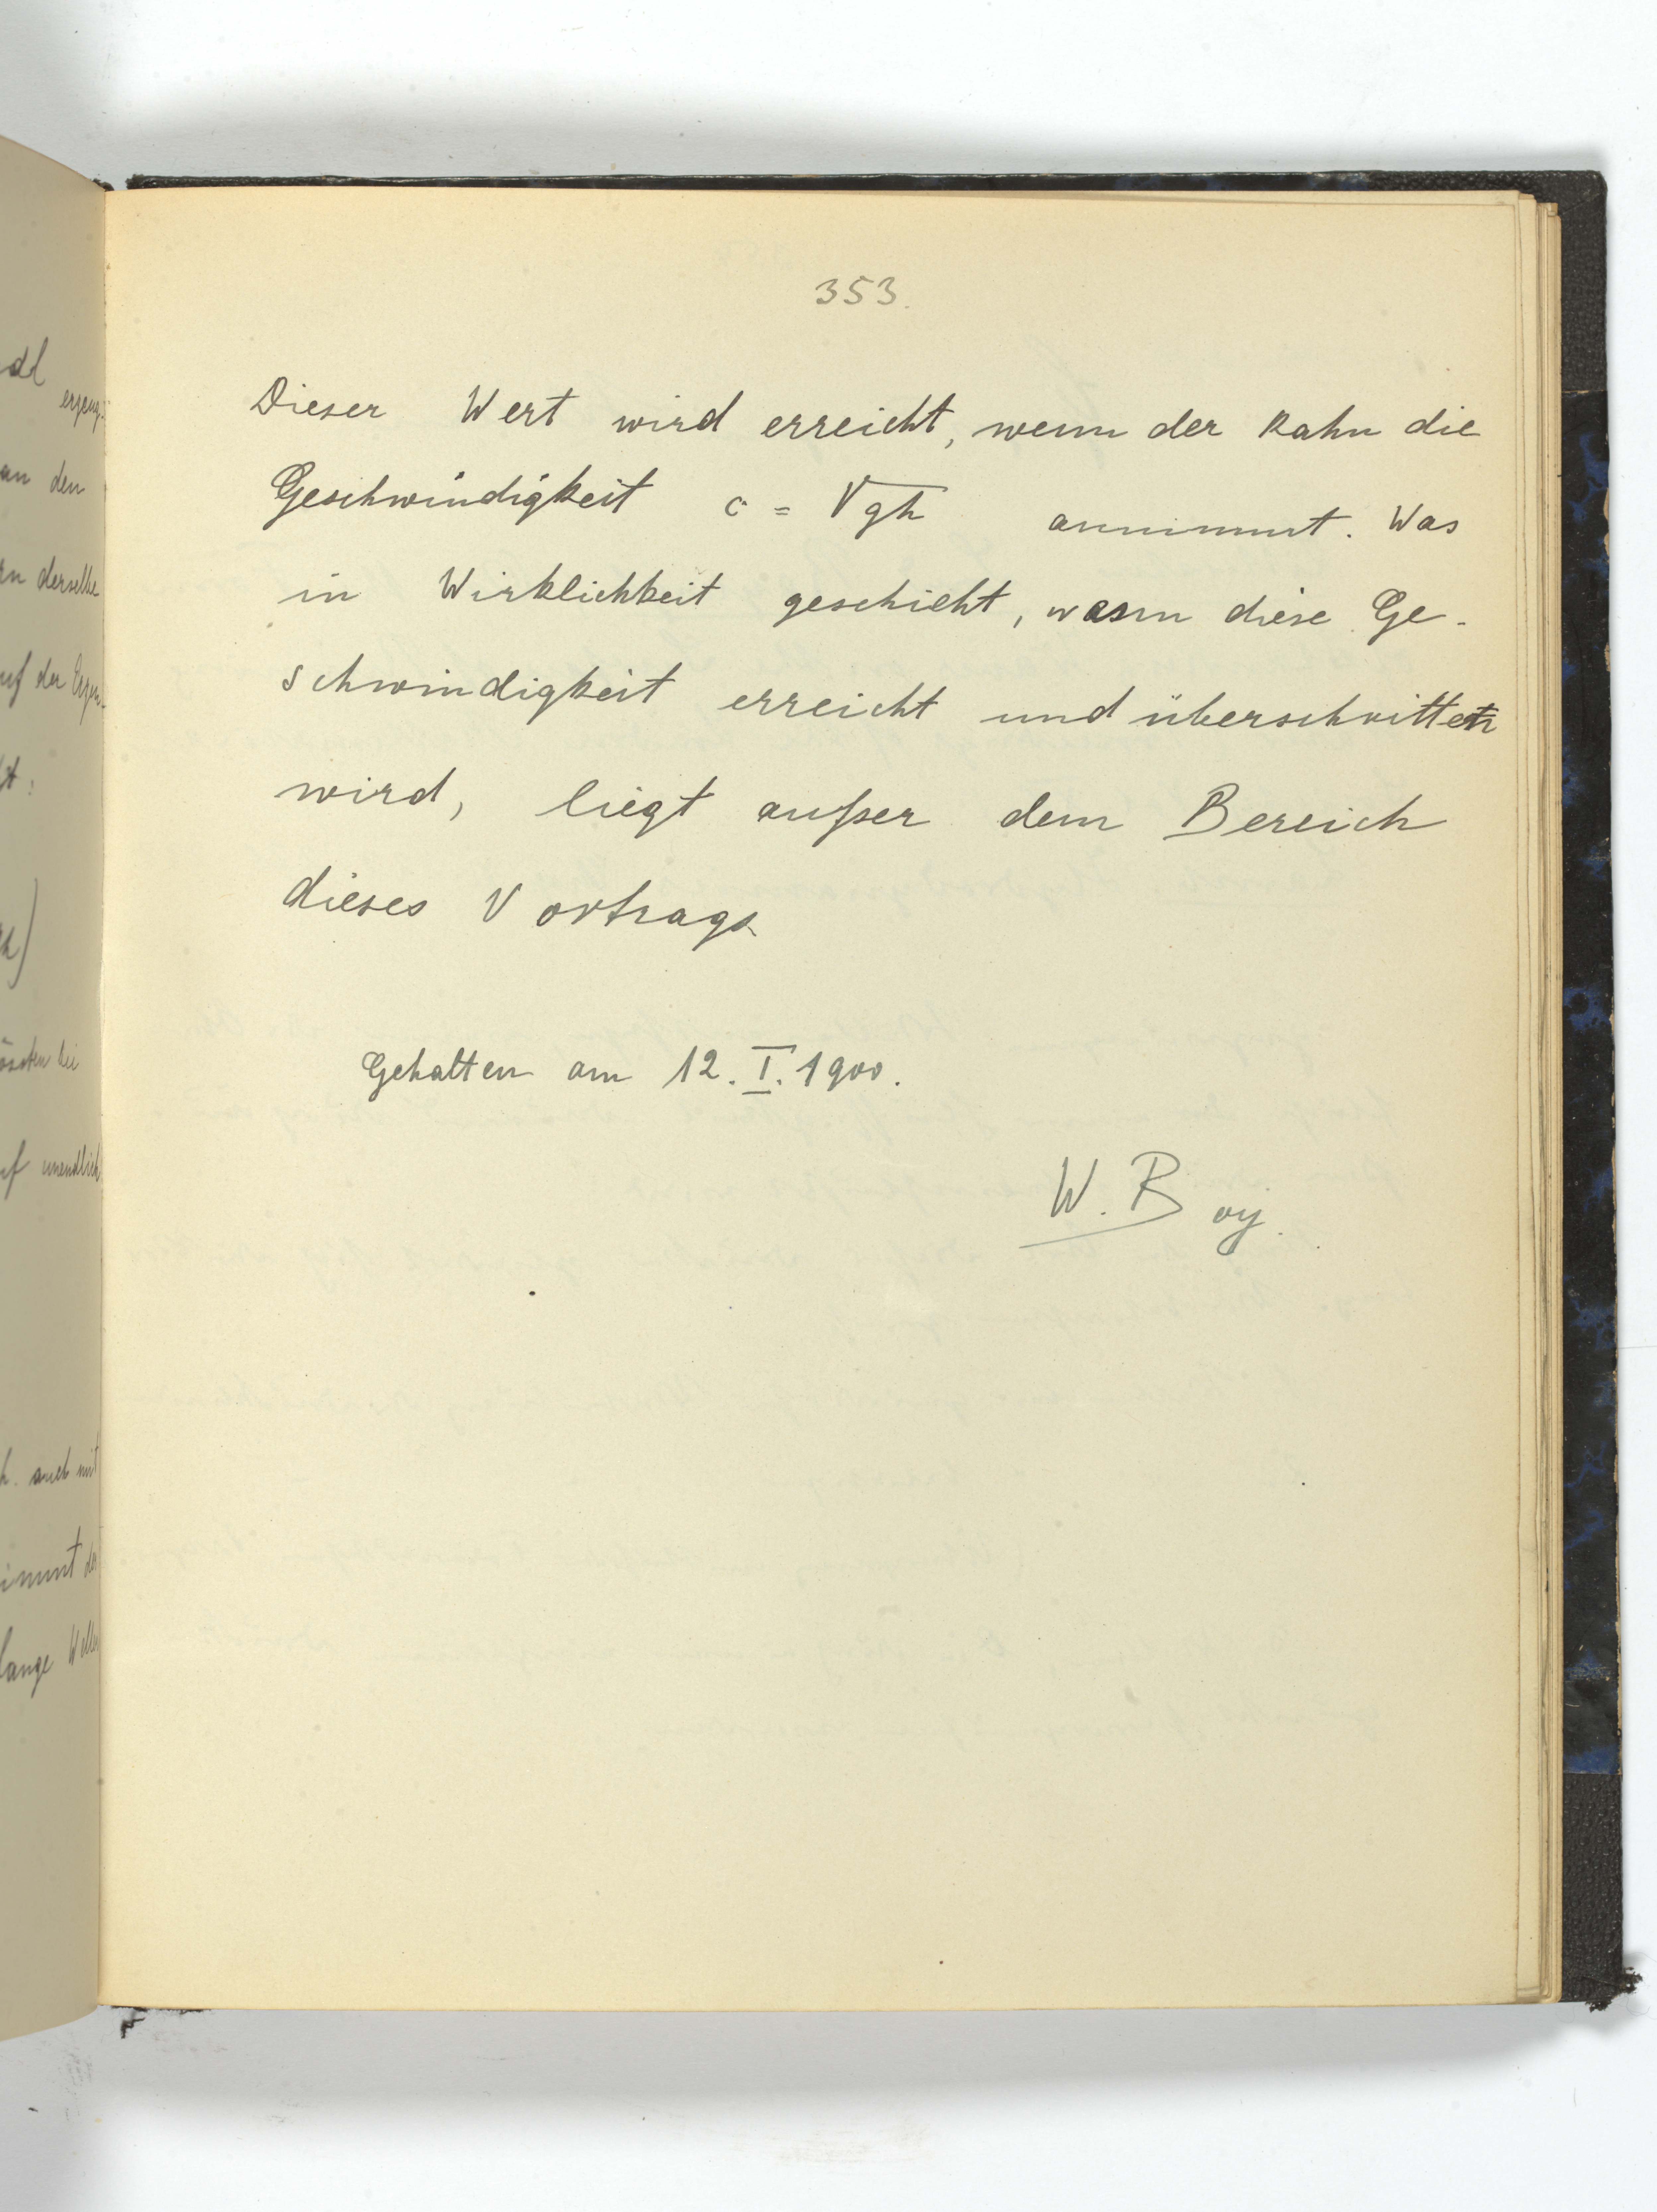 353.
Dieser Wert wird erreicht, wenn der Kahn die
Geschwindigkeit c = √gh annimmt. Was
in Wirklichkeit geschieht, wenn diese Ge-
schwindigkeit erreicht und überschritten
wird, liegt außer dem Bereich
dieses Vortrags
Gehalten am 12. I. 1900.
W. Boy.
an den
derselbe
auf der
unendlich
auch mit
lange